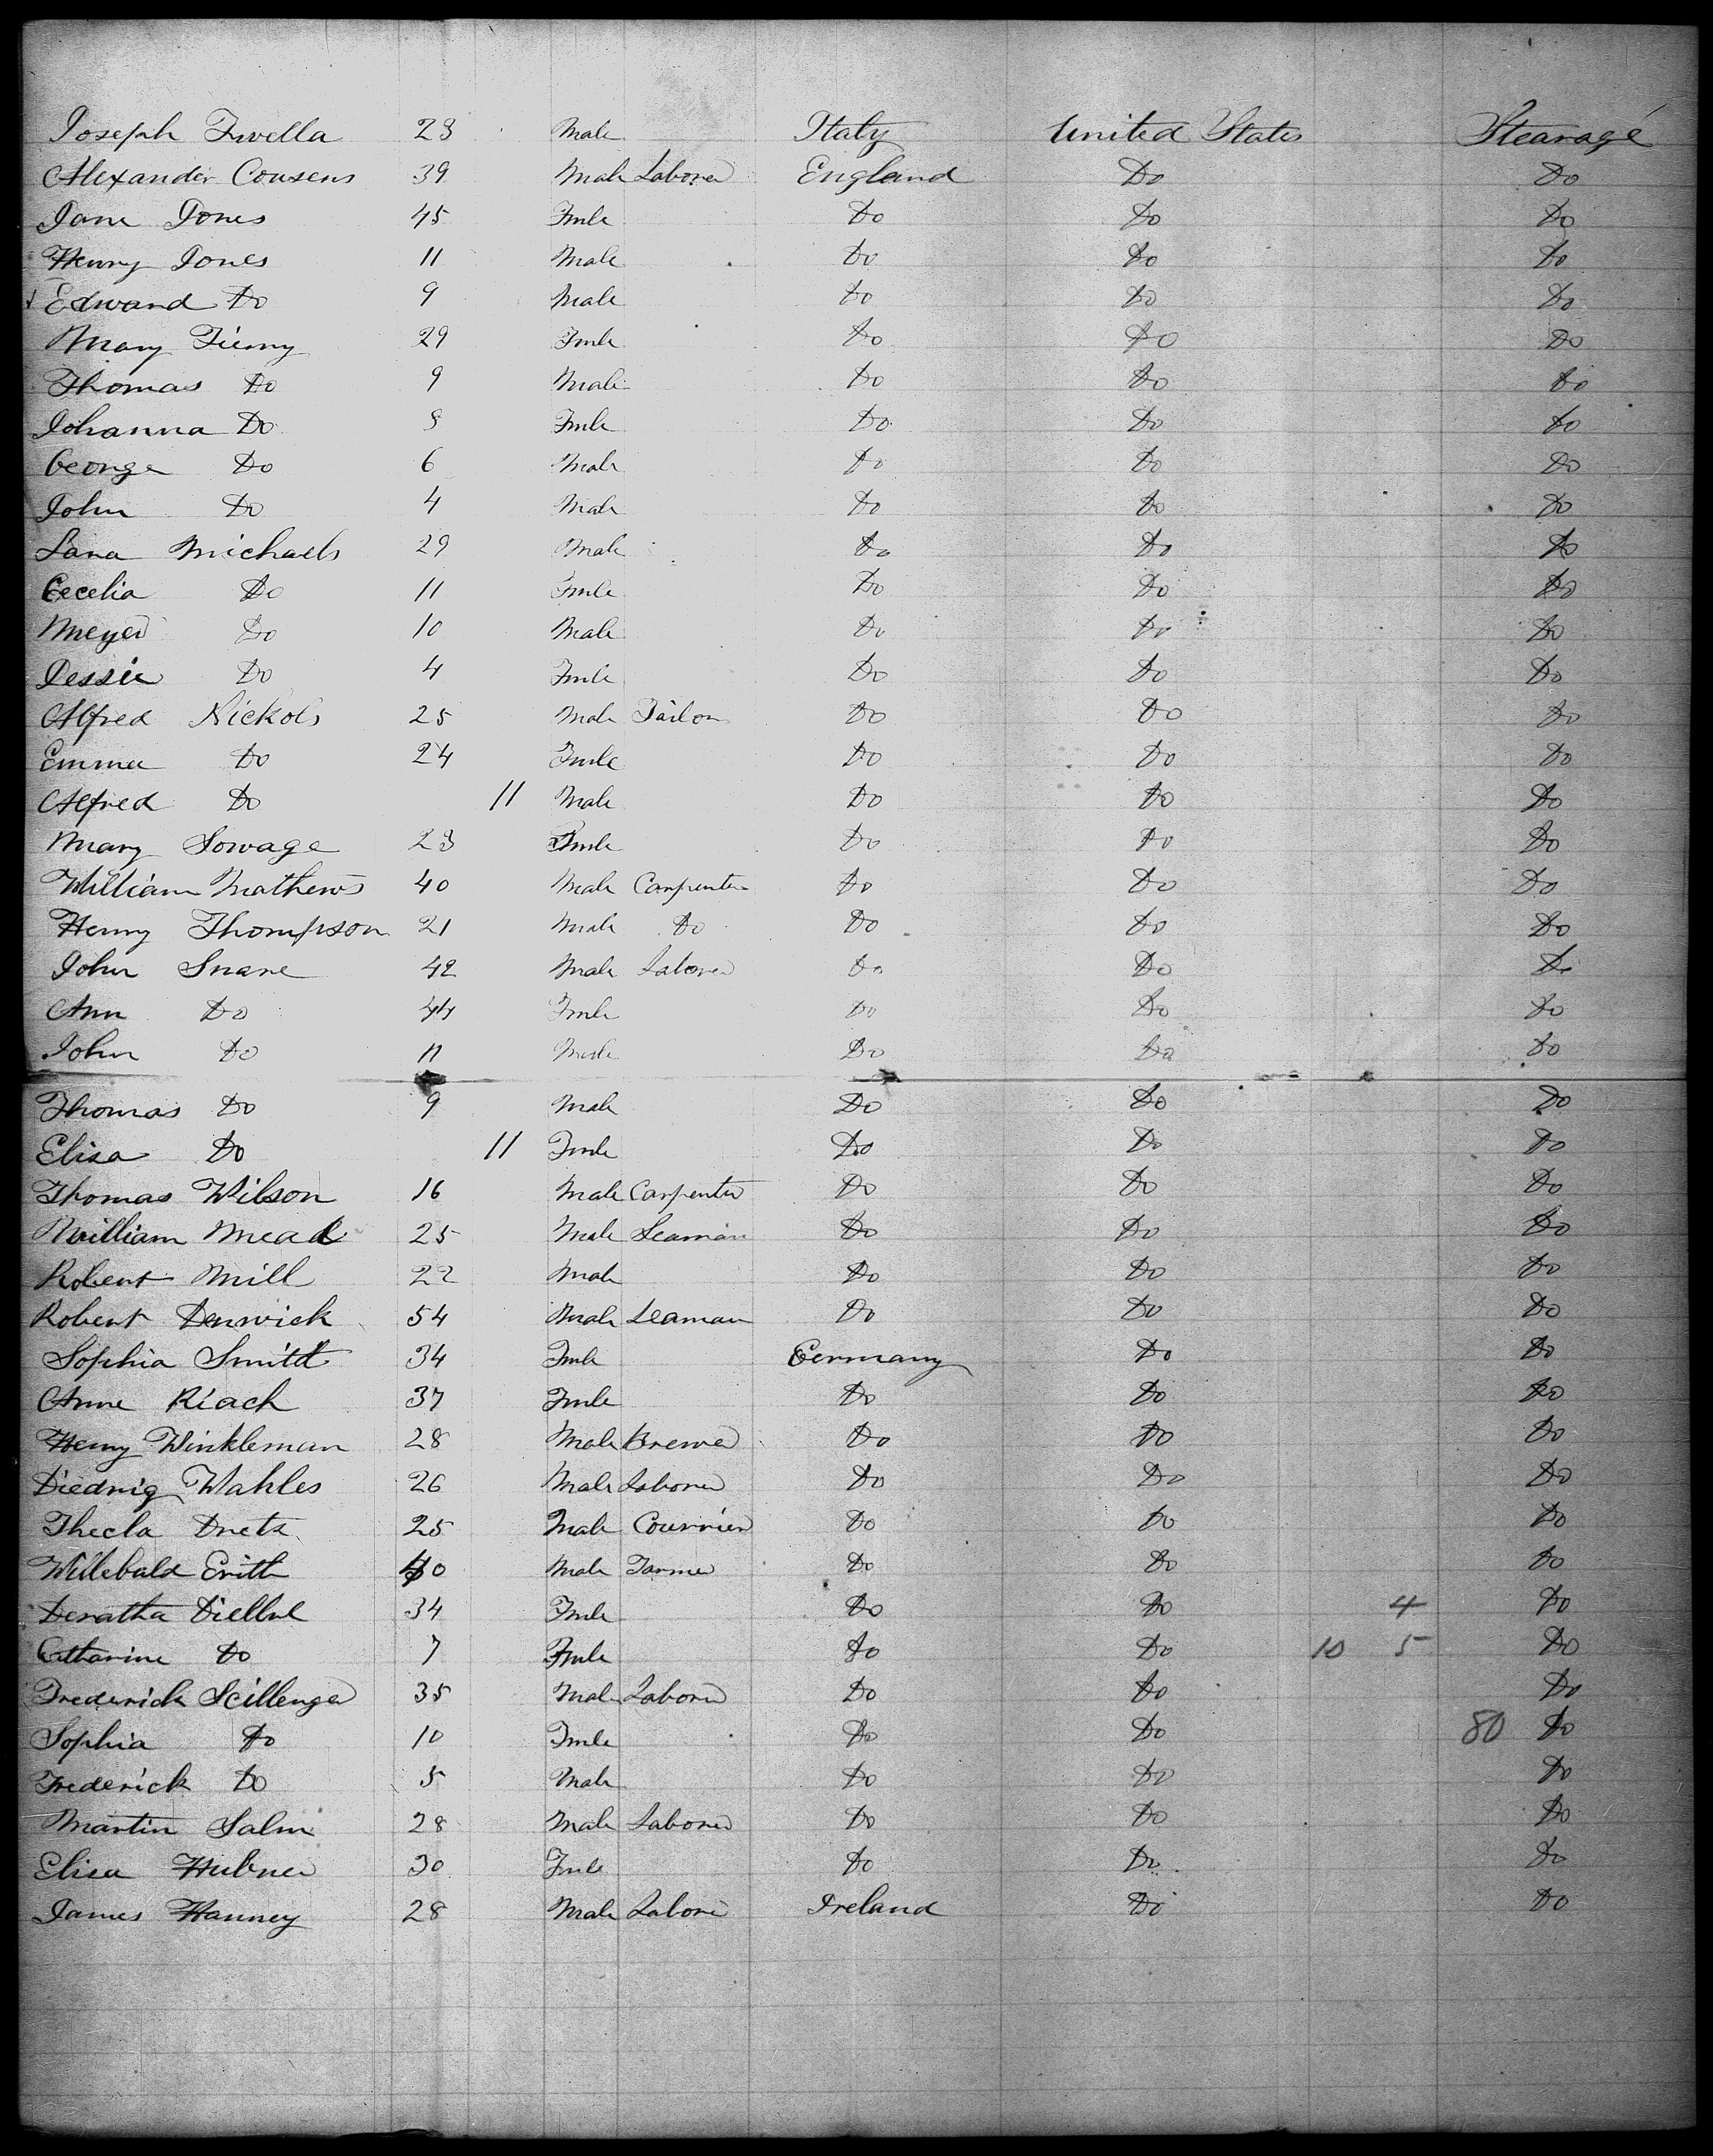 Joseph Fwella 23 Male Italy United States Stearage
Alexander Cousens 39 Male Laborer England Do Do
Jane Jones 45 Fmle Do Do Do
Henry Jones 11 Male Do Do Do
Edward Do 9 Male Do Do Do
Mary Tierny 29 Fmle Do Do Do
Thomas Do 9 Male Do Do Do
Johanna Do 8 Fmle Do Do Do
George Do 6 Male Do Do Do
John Do 4 Male Do Do Do
Lana Michaels 29 Male Do Do Do
Cecelia Do 11 Fmle Do Do Do
Meyer Do 10 Male Do Do Do
Jessie Do 4 Fmle Do Do Do
Alfred Nickols 25 Male Tailor Do Do Do
Emma Do 24 Fmle Do Do Do
Alfred Do 11 Male Do Do Do
Mary Sowage 23 Fmle Do Do Do
William Mathews 40 Male Carpenter Do Do Do
Henry Thompson 21 Male Do Do Do Do
John Snare 42 Male Laborer Do Do Do
Ann Do 44 Fmle Do Do Do
John Do 11 Male Do Do Do
Thomas Do 9 Male Do Do Do
Eliza Do 11 Fmle Do Do Do
Thomas Wilson 16 Male Carpenter Do Do Do
William Mead 25 Male Seaman Do Do Do
Robert Mill 22 Male Do Do Do
Robert Denwick 54 Male Seaman Do Do Do
Sophia Smitt 34 Fmle Germany Do Do
Anne Riach 37 Fmle Do Do Do
Henry Winkleman 28 Male Brewer Do Do Do
Diedrig Wahles 26 Male Laborer Do Do Do
Thecla Dretz 25 Male Courrier Do Do Do
Willebald Erith 40 Male Farmer Do Do Do
Deratha 34 Fmle Do Do 4 Do
Catharine Do 7 Fmle Do Do 10 5 Do
Frederick Scillenger 35 Male Laborer Do Do Do
Sophia Do 10 Fmle Do Do 80 Do
Frederick Do 5 Male Do Do Do
Martin Salm 28 Male Laborer Do Do Do
Elisa Hubner 30 Fmle Do Do Do
James Hanney 28 Male Labore Ireland Do Do